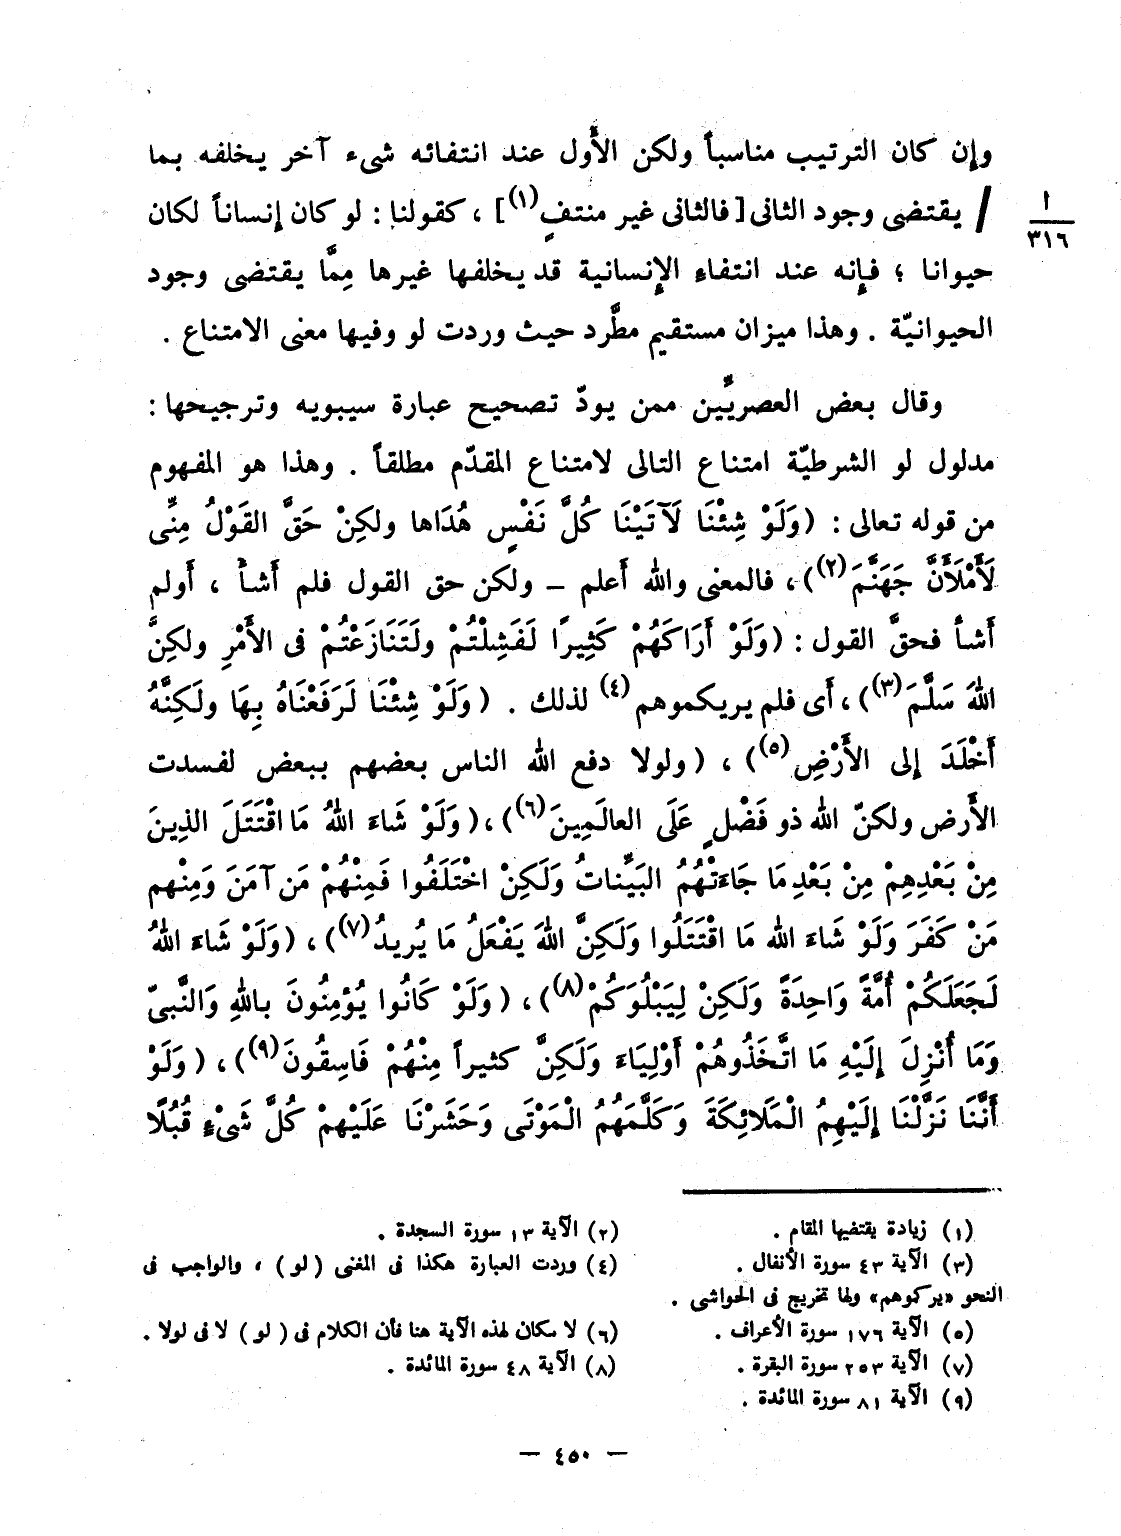 وإن كان الترتيب مناسباً ولكن الأَول عند انتفائه شىء آخر يخلفه بما
ا
٣١٦
/ يقتضى وجود الثانى [ فالثانى غير منتفٍ(١) ] ، كقولنا : لو كان إنساناً لكان
حيوانا ؛ فإنه عند انتفاء الإنسانية قد يخلفها غيرها مِمَّا يقتضى وجود
الحيوانيّة . وهذا ميزان مستقيم مطَّرد حيث وردت لو وفيها معنى الامتناع .
وقال بعض العصريِّين ممن يودّ تصحيح عبارة سيبويه وترجيحها :
مدلول لو الشرطيّة امتناع التالى لامتناع المقدّم مطلقاً . وهذا هو المفهوم
من قوله تعالى : ( وَلَوْ شِئْنَا لَآتَيْنَا كُلَّ نَفْسٍ هُدَاها ولكِنْ حَقَّ القَوْلُ مِنِّى
لَأَمْلَأَنَّ جَهَنَّمَ(٢) ) ، فالمعنى والله أَعلم – ولكن حق القول فلم أَشأْ ، أَولم
أَشأْ فحقَّ القول : ( وَلَوْ أَرَاكَهُمْ كَثِيرًا لَفَشِلْتُمْ ولَتَنَازَعْتُمْ فى الأَمْرِ ولكِنَّ
اللهَ سَلَّمَ(٣) ) ، أَى فلم يريكموهم(٤) لذلك . ( وَلَوْ شِئْنَا لَرَفَعْنَاهُ بِهَا ولَكِنَّهُ
أَخْلَدَ إلى الأَرْضِ(٥) ) ، ( ولولا دفع الله الناس بعضهم ببعض لفسدت
الأَرض ولكنّ الله ذو فَضْلٍ عَلَى العالَمِينَ(٦) ) ، ( وَلَوْ شَاءَ اللهُ مَا اقْتَتَلَ الذِينَ
مِنْ بَعْدِهِمْ مِنْ بَعْدِ مَا جَاءَتْهُمُ البَيِّناتُ وَلَكِنْ اخْتَلَفُوا فَمِنْهُمْ مَن آمَنَ وَمِنْهم
مَنْ كَفَرَ وَلَوْ شَاءَ الله مَا اقْتَتَلُوا وَلَكِنَّ اللهَ يَفْعَلُ مَا يُرِيدُ(٧) ) ، ( وَلَوْ شَاءَ اللهُ
لَجَعَلَكُمْ أُمَّةً وَاحِدَةً وَلَكِنْ لِيَبْلُوَكُمْ(٨) ) ، ( وَلَوْ كَانُوا يُؤمِنُونَ بالله وَالنَّبىّ
وَمَا أُنْزِلَ إلَيْهِ مَا اتَّخَذُوهُمْ أَوْلِيَاءَ وَلَكِنَّ كثيراً مِنْهُمْ فَاسِقُونَ(٩) ) ، ( وَلَوْ
أَنَّنَا نَزَّلْنَا إلَيْهِمُ الْمَلَائِكَةَ وَكَلَّمَهُمُ الْمَوْتَى وَحَشَرْنَا عَلَيْهِمْ كُلَّ شَىْءٍ قُبُلًا
(١) زيادة يقتضيها المقام .
(٢) الآية ١٣ سورة السجدة .
(٣) الآية ٤٣ سورة الأنفال .
(٤) وردت العبارة هكذا فى المغنى ( لو ) ، والواجب فى
النحو «يركموهم» ولها تخريج فى الحواشى .
(٥) الآية ١٧٦ سورة الأعراف .
(٦) لا مكان لهذه الآية هنا فأن الكلام فى ( لو ) لا فى لولا .
(٧) الآية ٢٥٣ سورة البقرة .
(٨) الآية ٤٨ سورة المائدة .
(٩) الآية ٨١ سورة المائدة .
— ٤٥٠ —